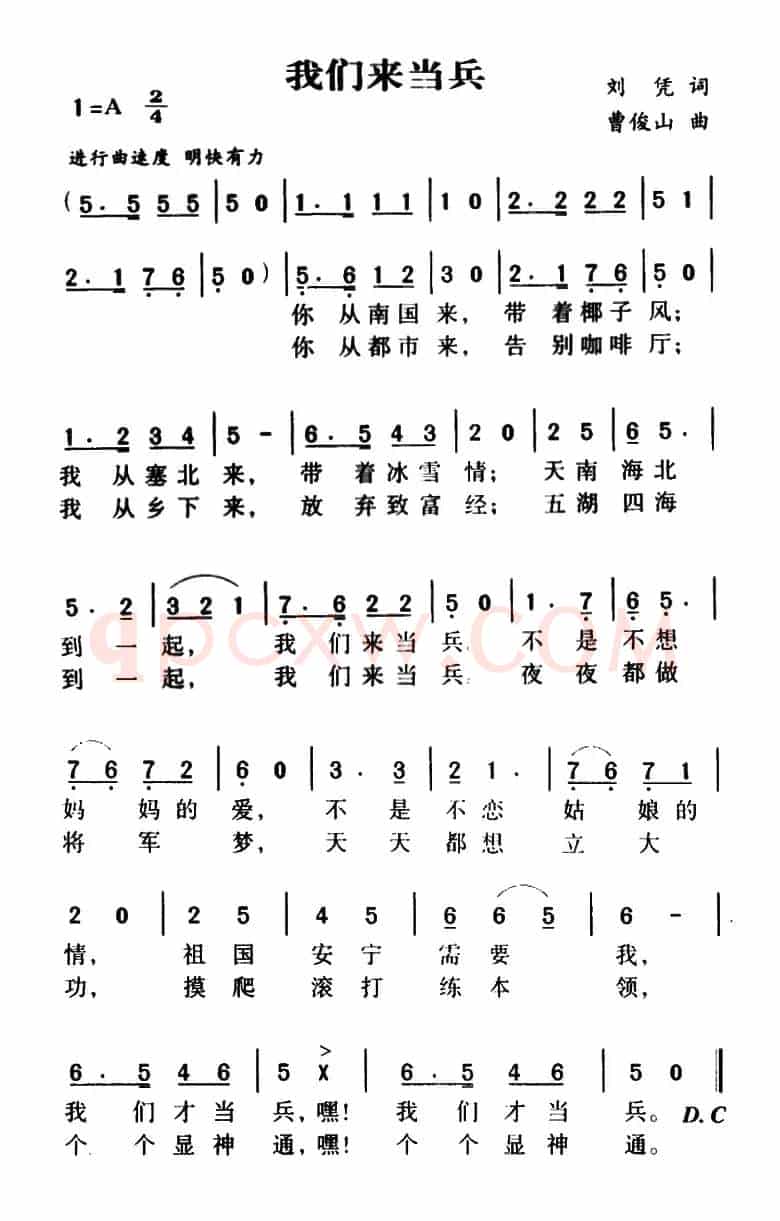 我们来当兵
1=A 2/4
刘 凭 词
曹俊山 曲
进行曲速度 明快有力
(5. 5 5 5 | 5 0 | 1. 1 1 1 | 1 0 | 2. 2 2 2 | 5 1 |
2. 1 7 6 | 5 0) | 5. 6 1 2 | 3 0 | 2. 1 7 6 | 5 0 |
你 从南国 来， 带 着椰子 风；
你 从都市 来， 告 别咖啡 厅；
1. 2 3 4 | 5 - | 6. 5 4 3 | 2 0 | 2 5 | 6 5. |
我 从塞北 来， 带 着冰雪 情； 天南 海北
我 从乡下 来， 放 弃致富 经； 五湖 四海
5. 2 | 3 2 1 | 7. 6 2 2 | 5 0 | 1. 7 | 6 5. |
到一 起， 我 们来当 兵 不 是不想
到一 起， 我 们来当 兵 夜 夜都做
7 6 7 2 | 6 0 | 3. 3 | 2 1. | 7 6 7 1 |
妈 妈的 爱， 不 是 不恋 姑 娘的
将 军 梦， 天 天 都想 立 大
2 0 | 2 5 | 4 5 | 6 6 5 | 6 - |
情， 祖国 安宁 需要 我，
功， 摸爬 滚打 练本 领，
6. 5 4 6 | 5 X | 6. 5 4 6 | 5 0 ‖
我 们才当 兵，嘿！ 我 们才当 兵。 D.C
个 个显神 通，嘿！ 个 个显神 通。
qpcxw.COM